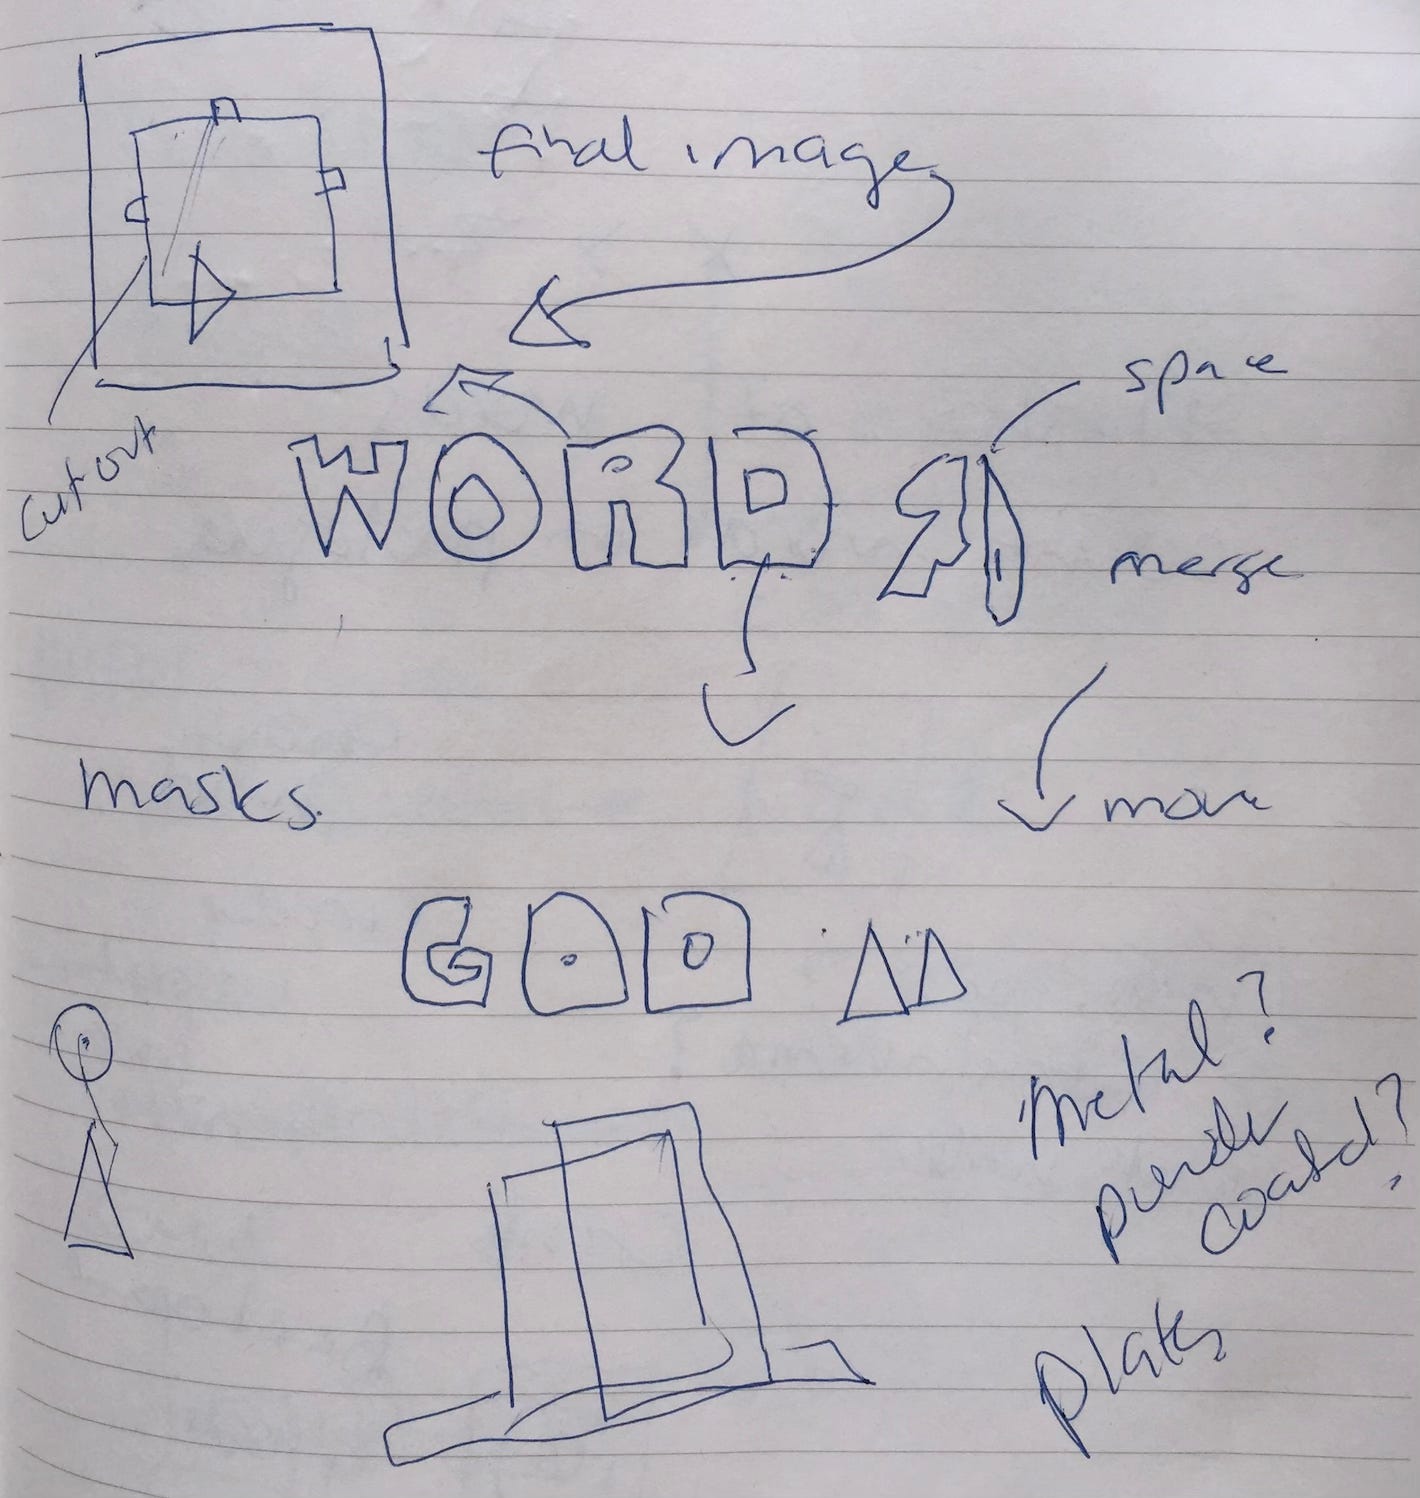 final image
space
cut out
WORD
merge
masks.
move
GOD
metal?
powder
coated?
plates